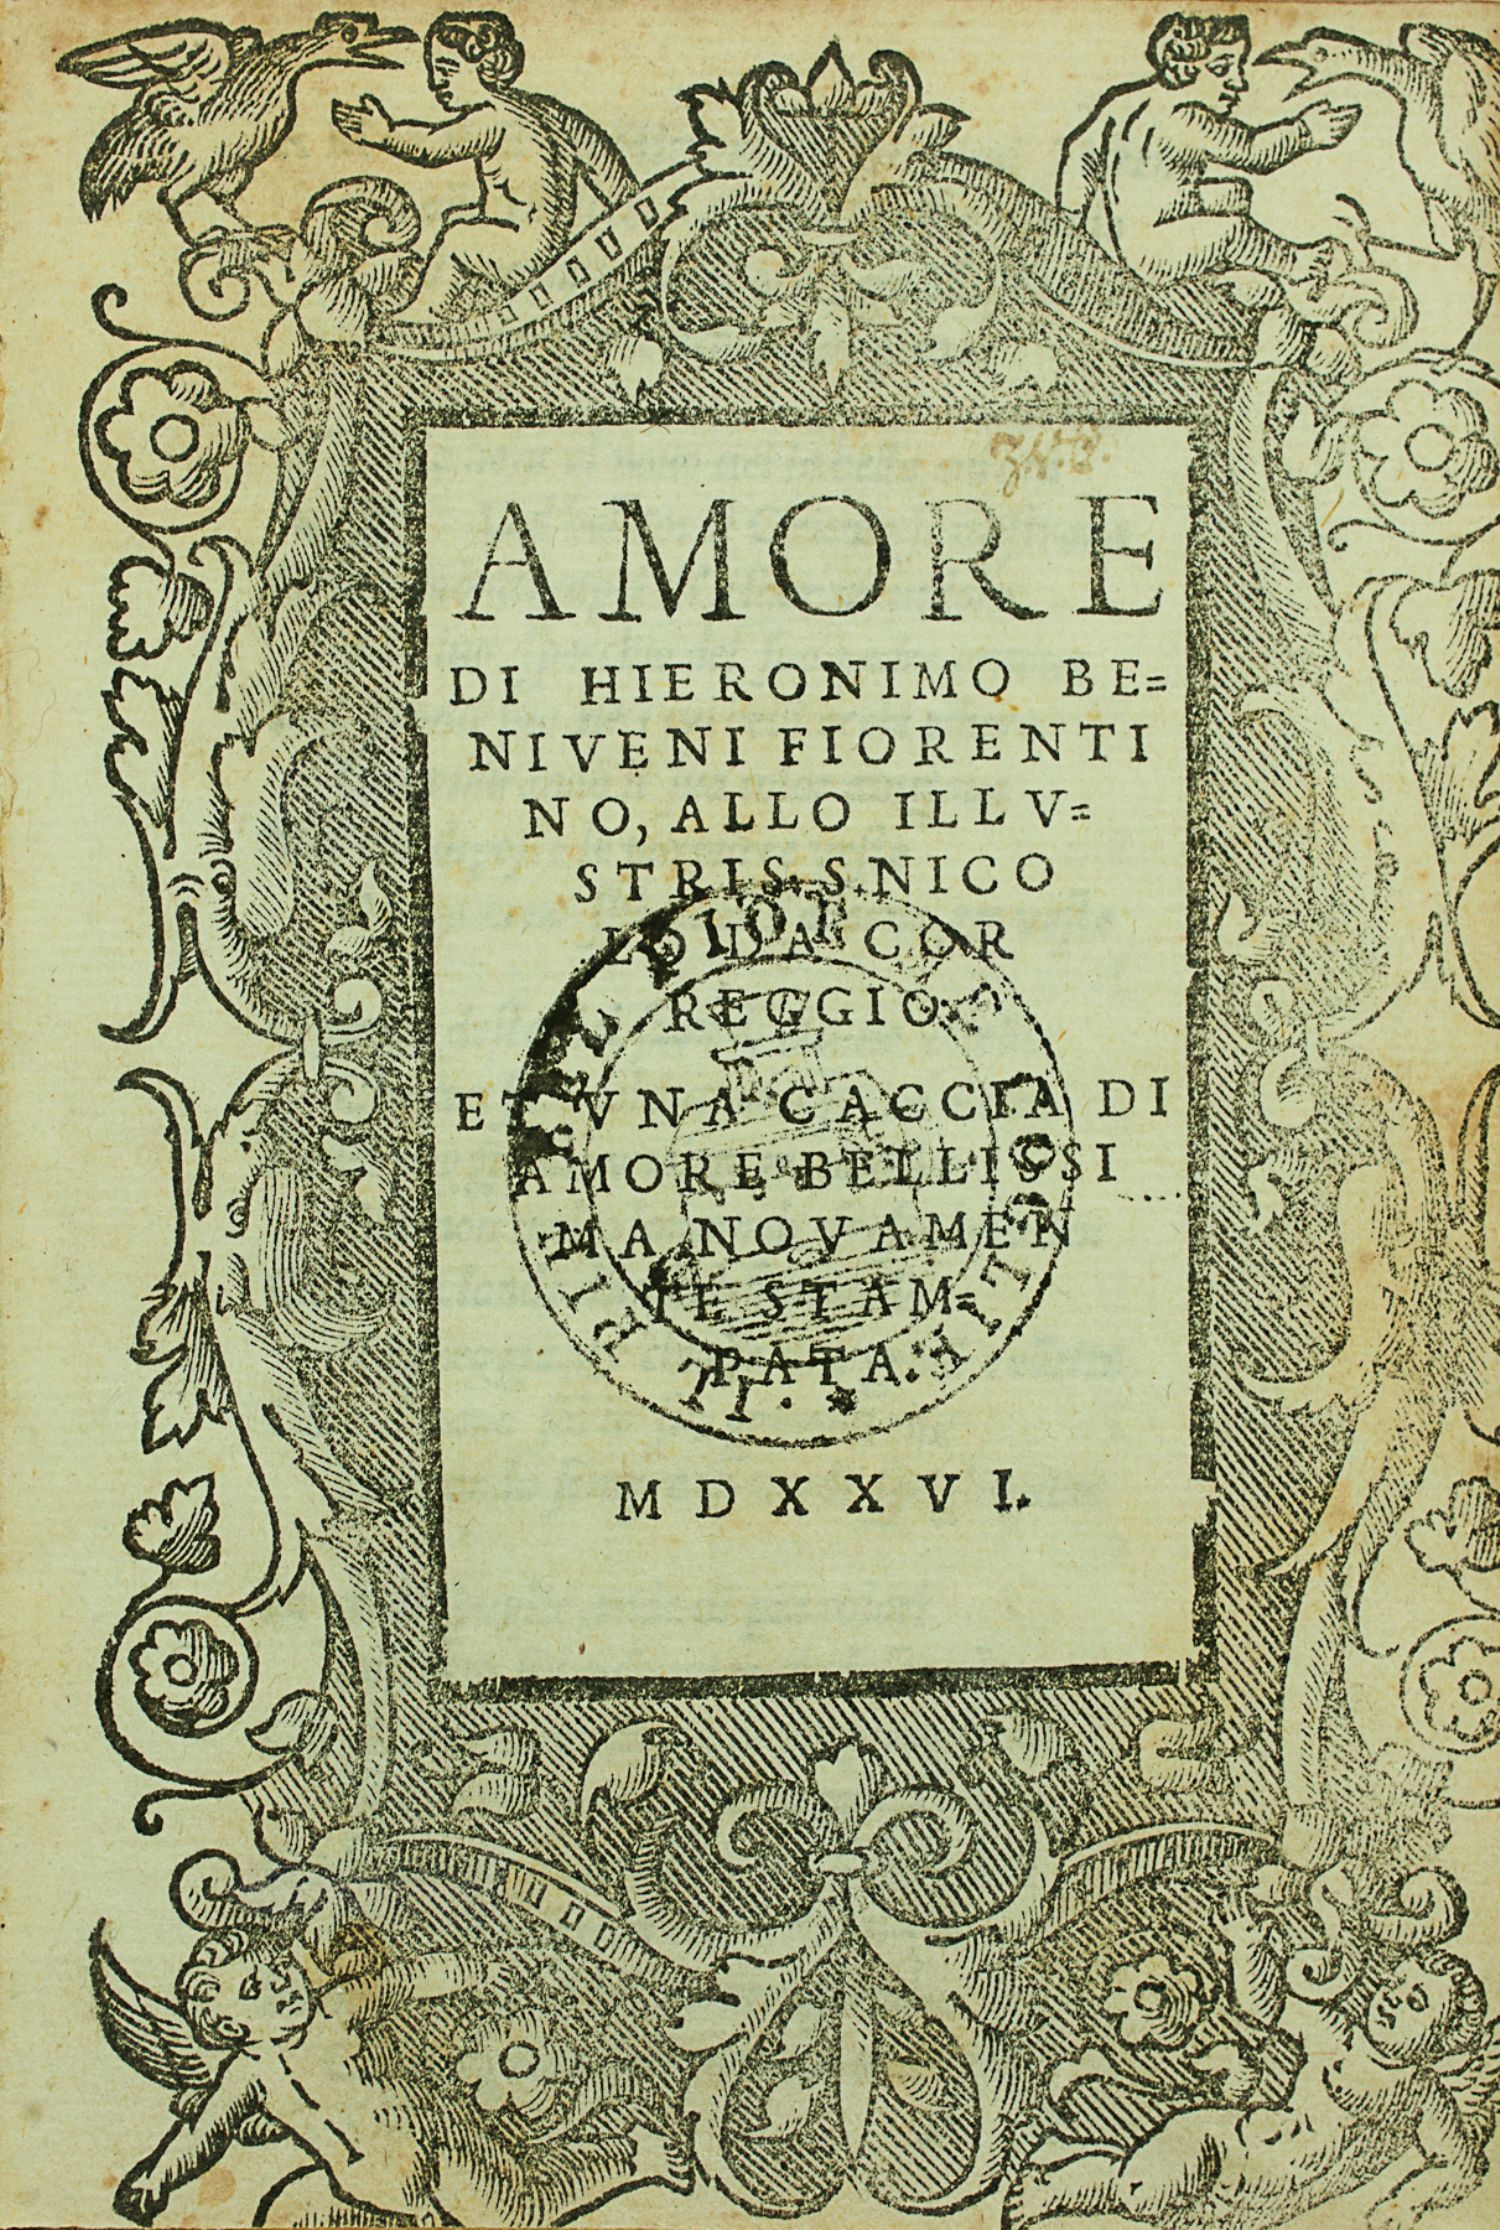 AMORE
DI HIERONIMO BE=
NIVENI FIORENTI
NO, ALLO ILLV=
STRIS. S. NICO
LO DA COR
REGGIO.
ET VNA CACCIA DI
AMORE BELLISSI
MA NOVAMEN
TE STAM=
PATA.
MDXXVI.